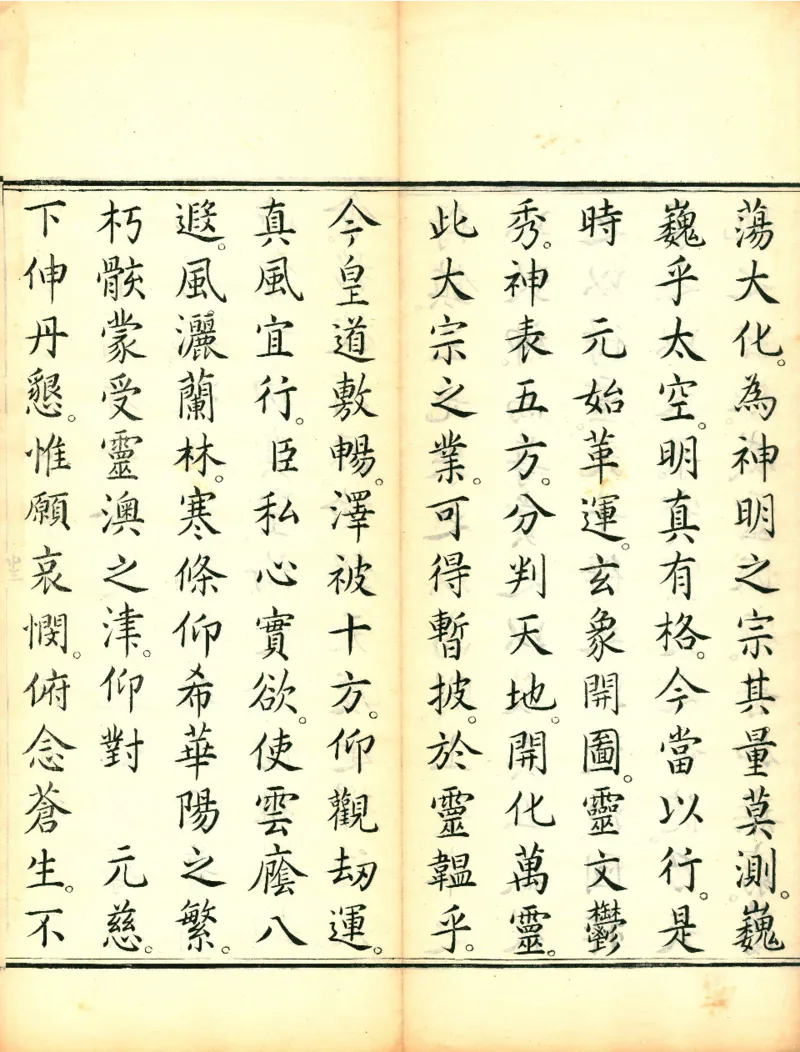 蕩大化。為神明之宗其量莫測。巍
巍乎太空。明真有格。今當以行。是
時　元始革運。玄象開圖。靈文鬱
秀。神表五方。分判天地。開化萬靈。
此大宗之業。可得暫披。於靈韞乎。
今皇道敷暢。澤被十方。仰觀劫運。
真風宜行。臣私心實欲。使雲廕八
遐。風灑蘭林。寒條仰希華陽之繁。
朽骸蒙受靈澳之津。仰對　元慈。
下伸丹懇。惟願哀憫。俯念蒼生。不